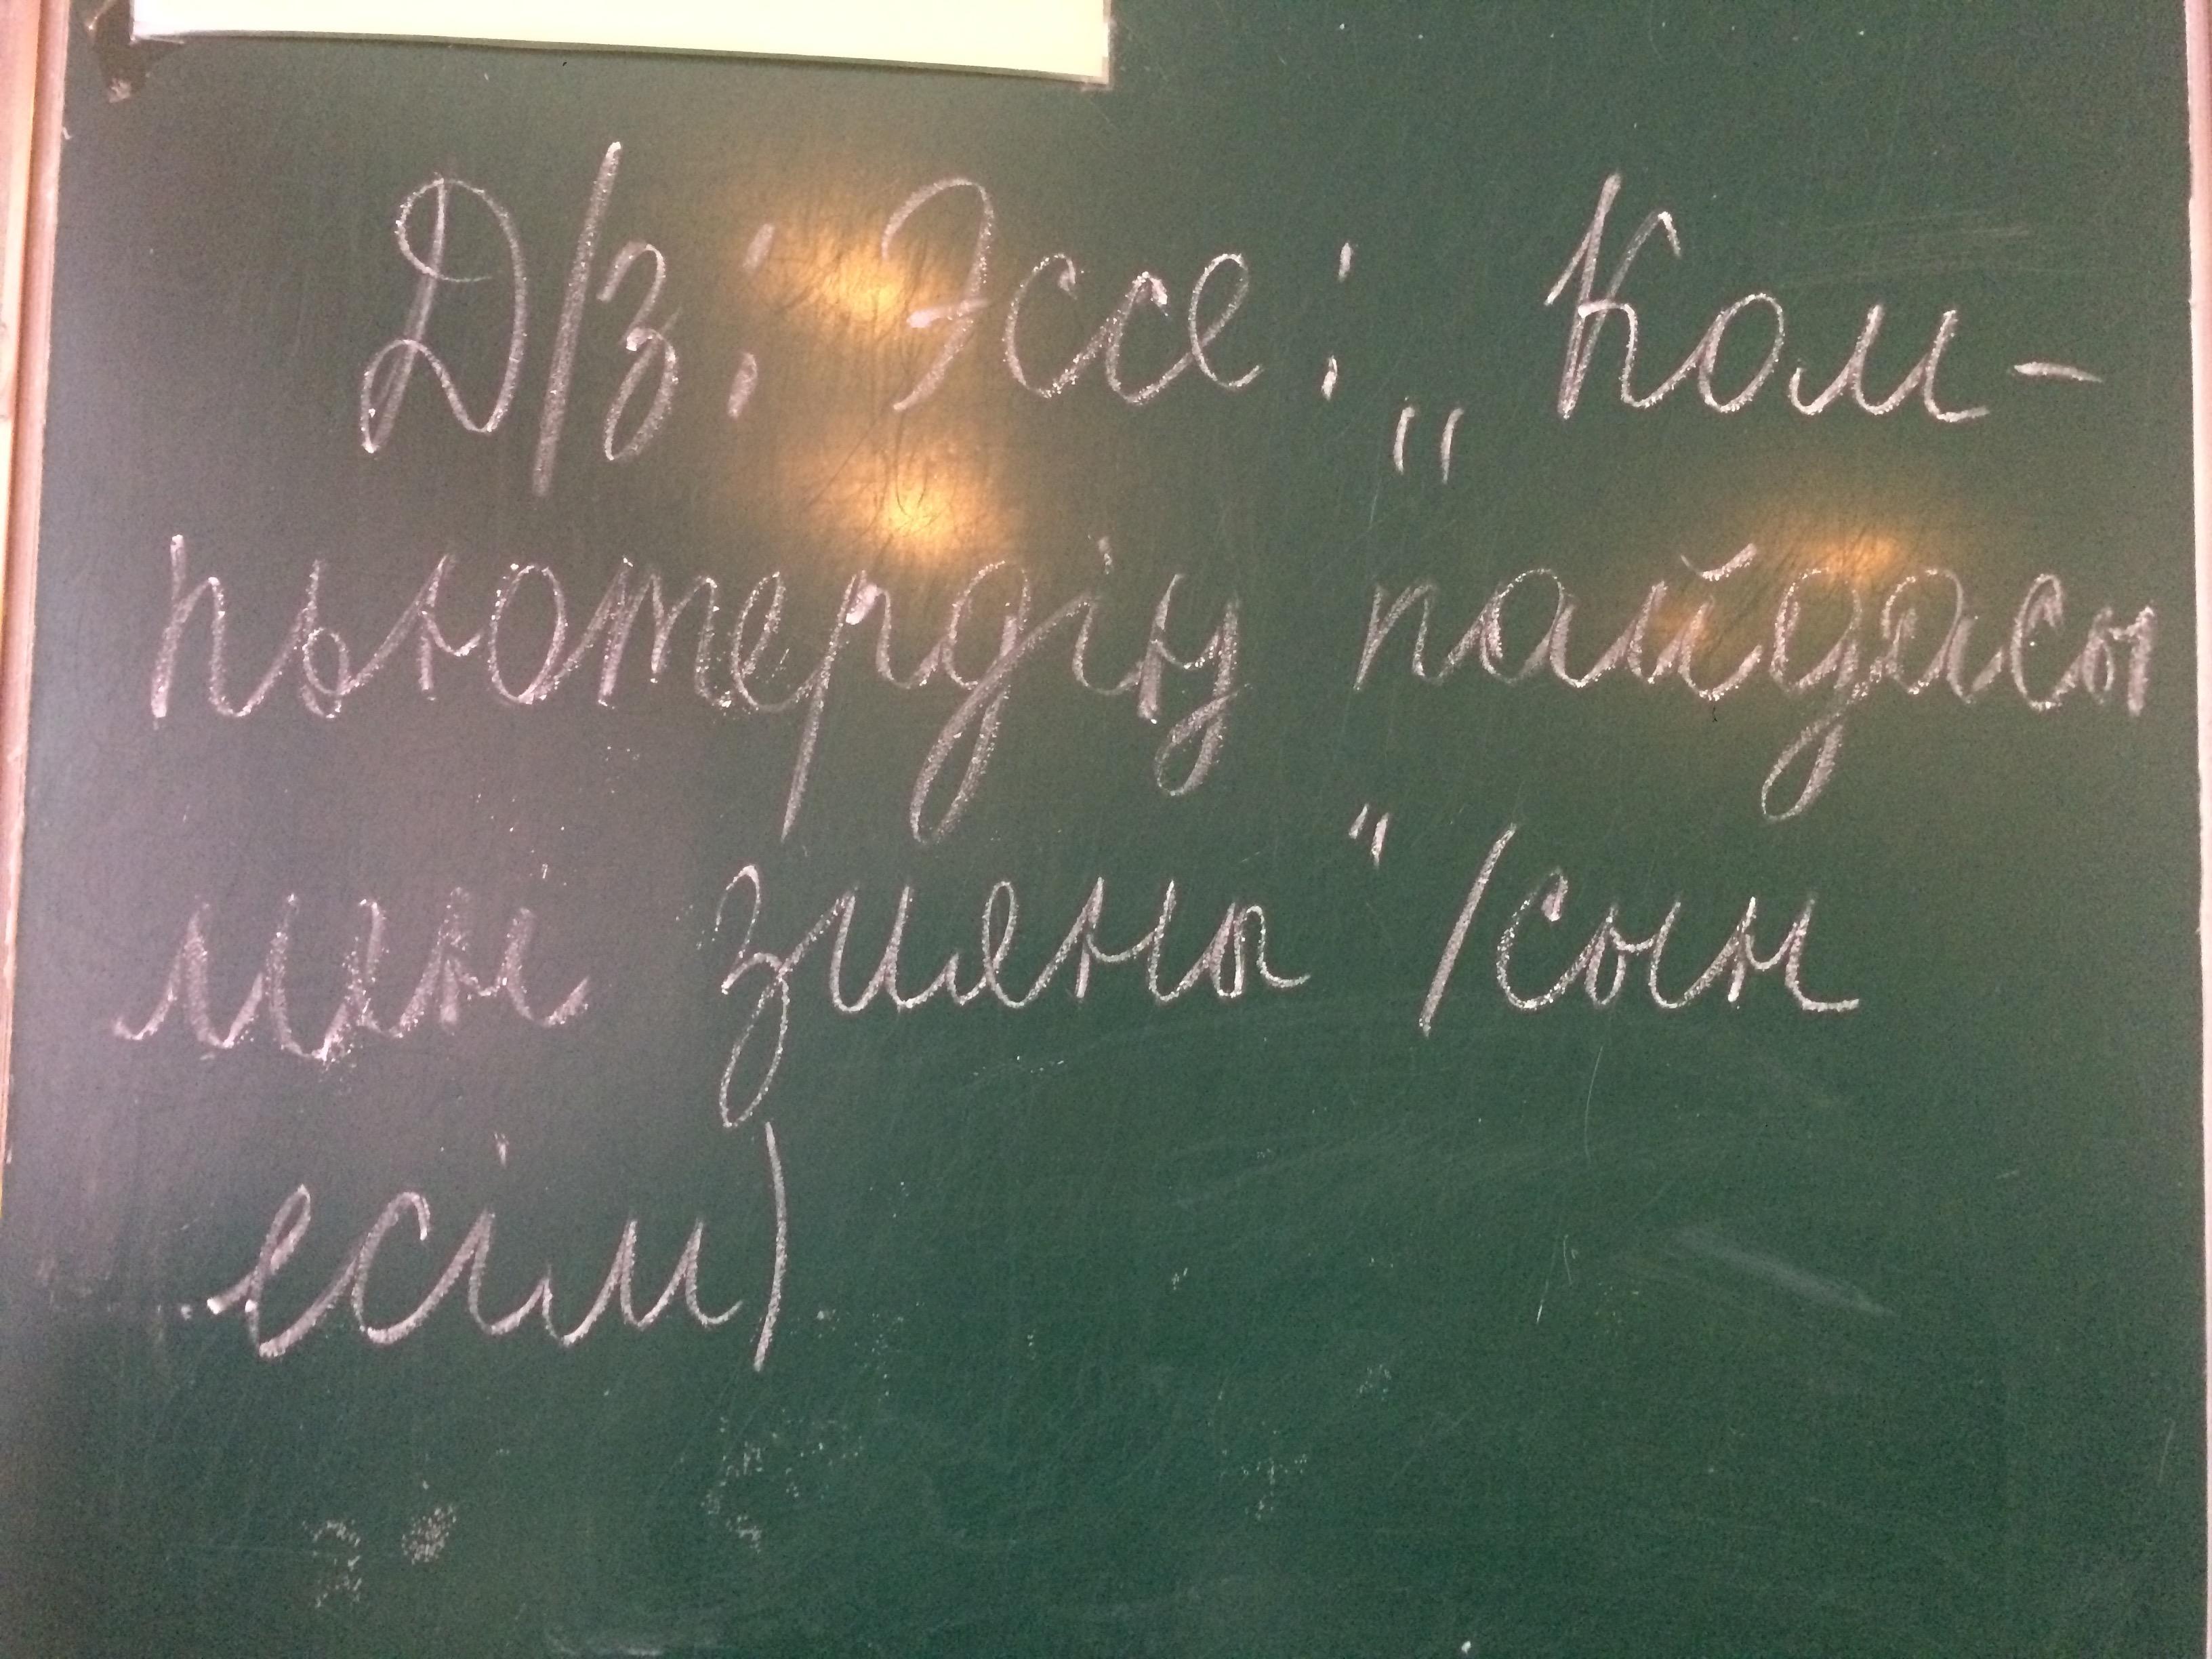 Д/з: Эссе: „Ком-
пьютердің пайдасы
мен зияны" /сын
есім)